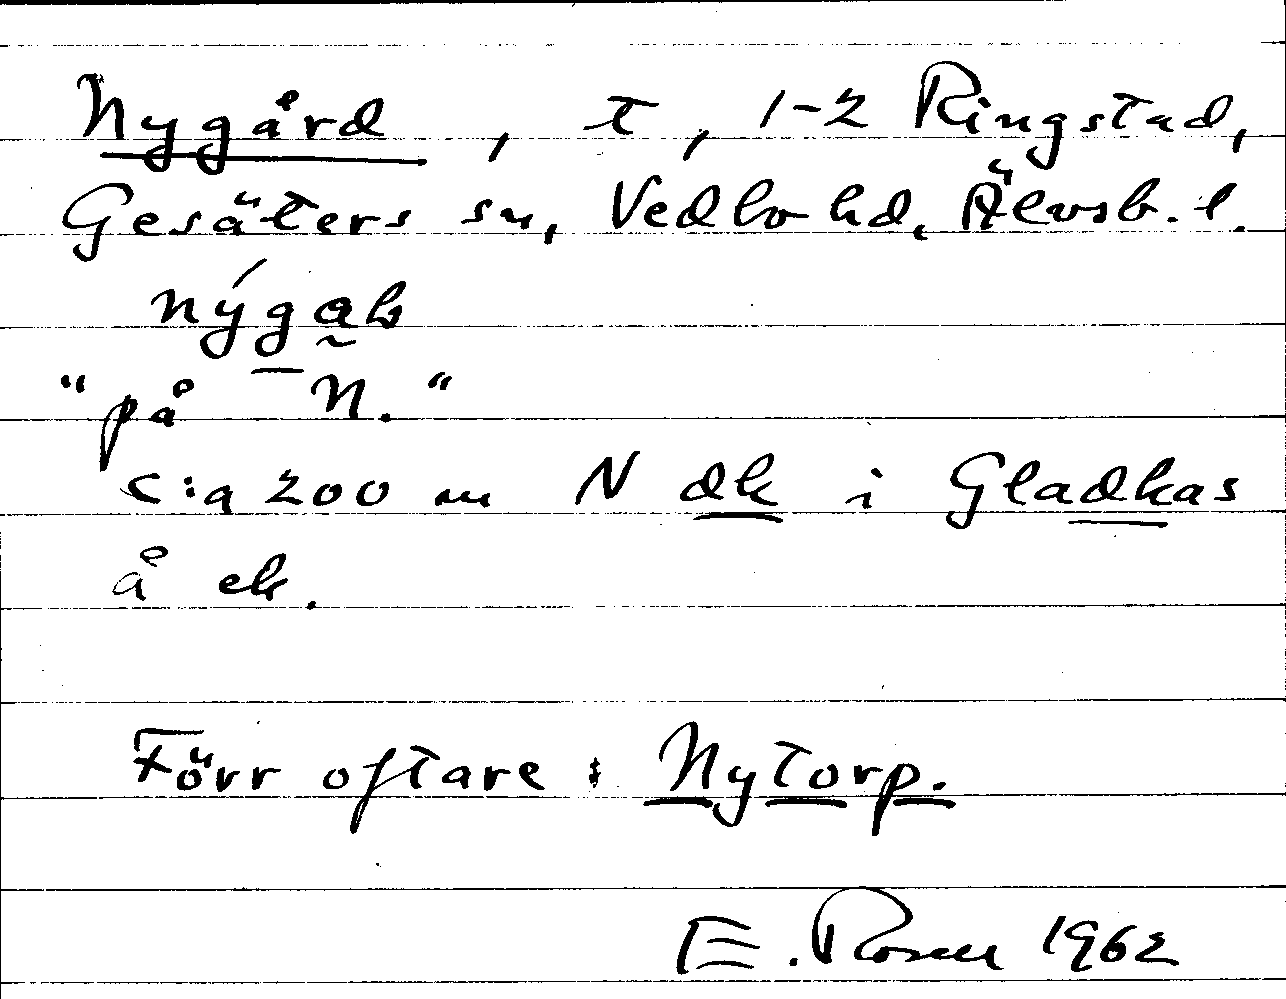 Nygård, t, 1-2 Ringstad,
Gesäters sn, Vedbo hd, Älvsb. l.
nýgab
"på N."
c:a 200 m N dk i Gladkas
å ek.
Förr oftare: Nytorp.
E. Rosen 1962